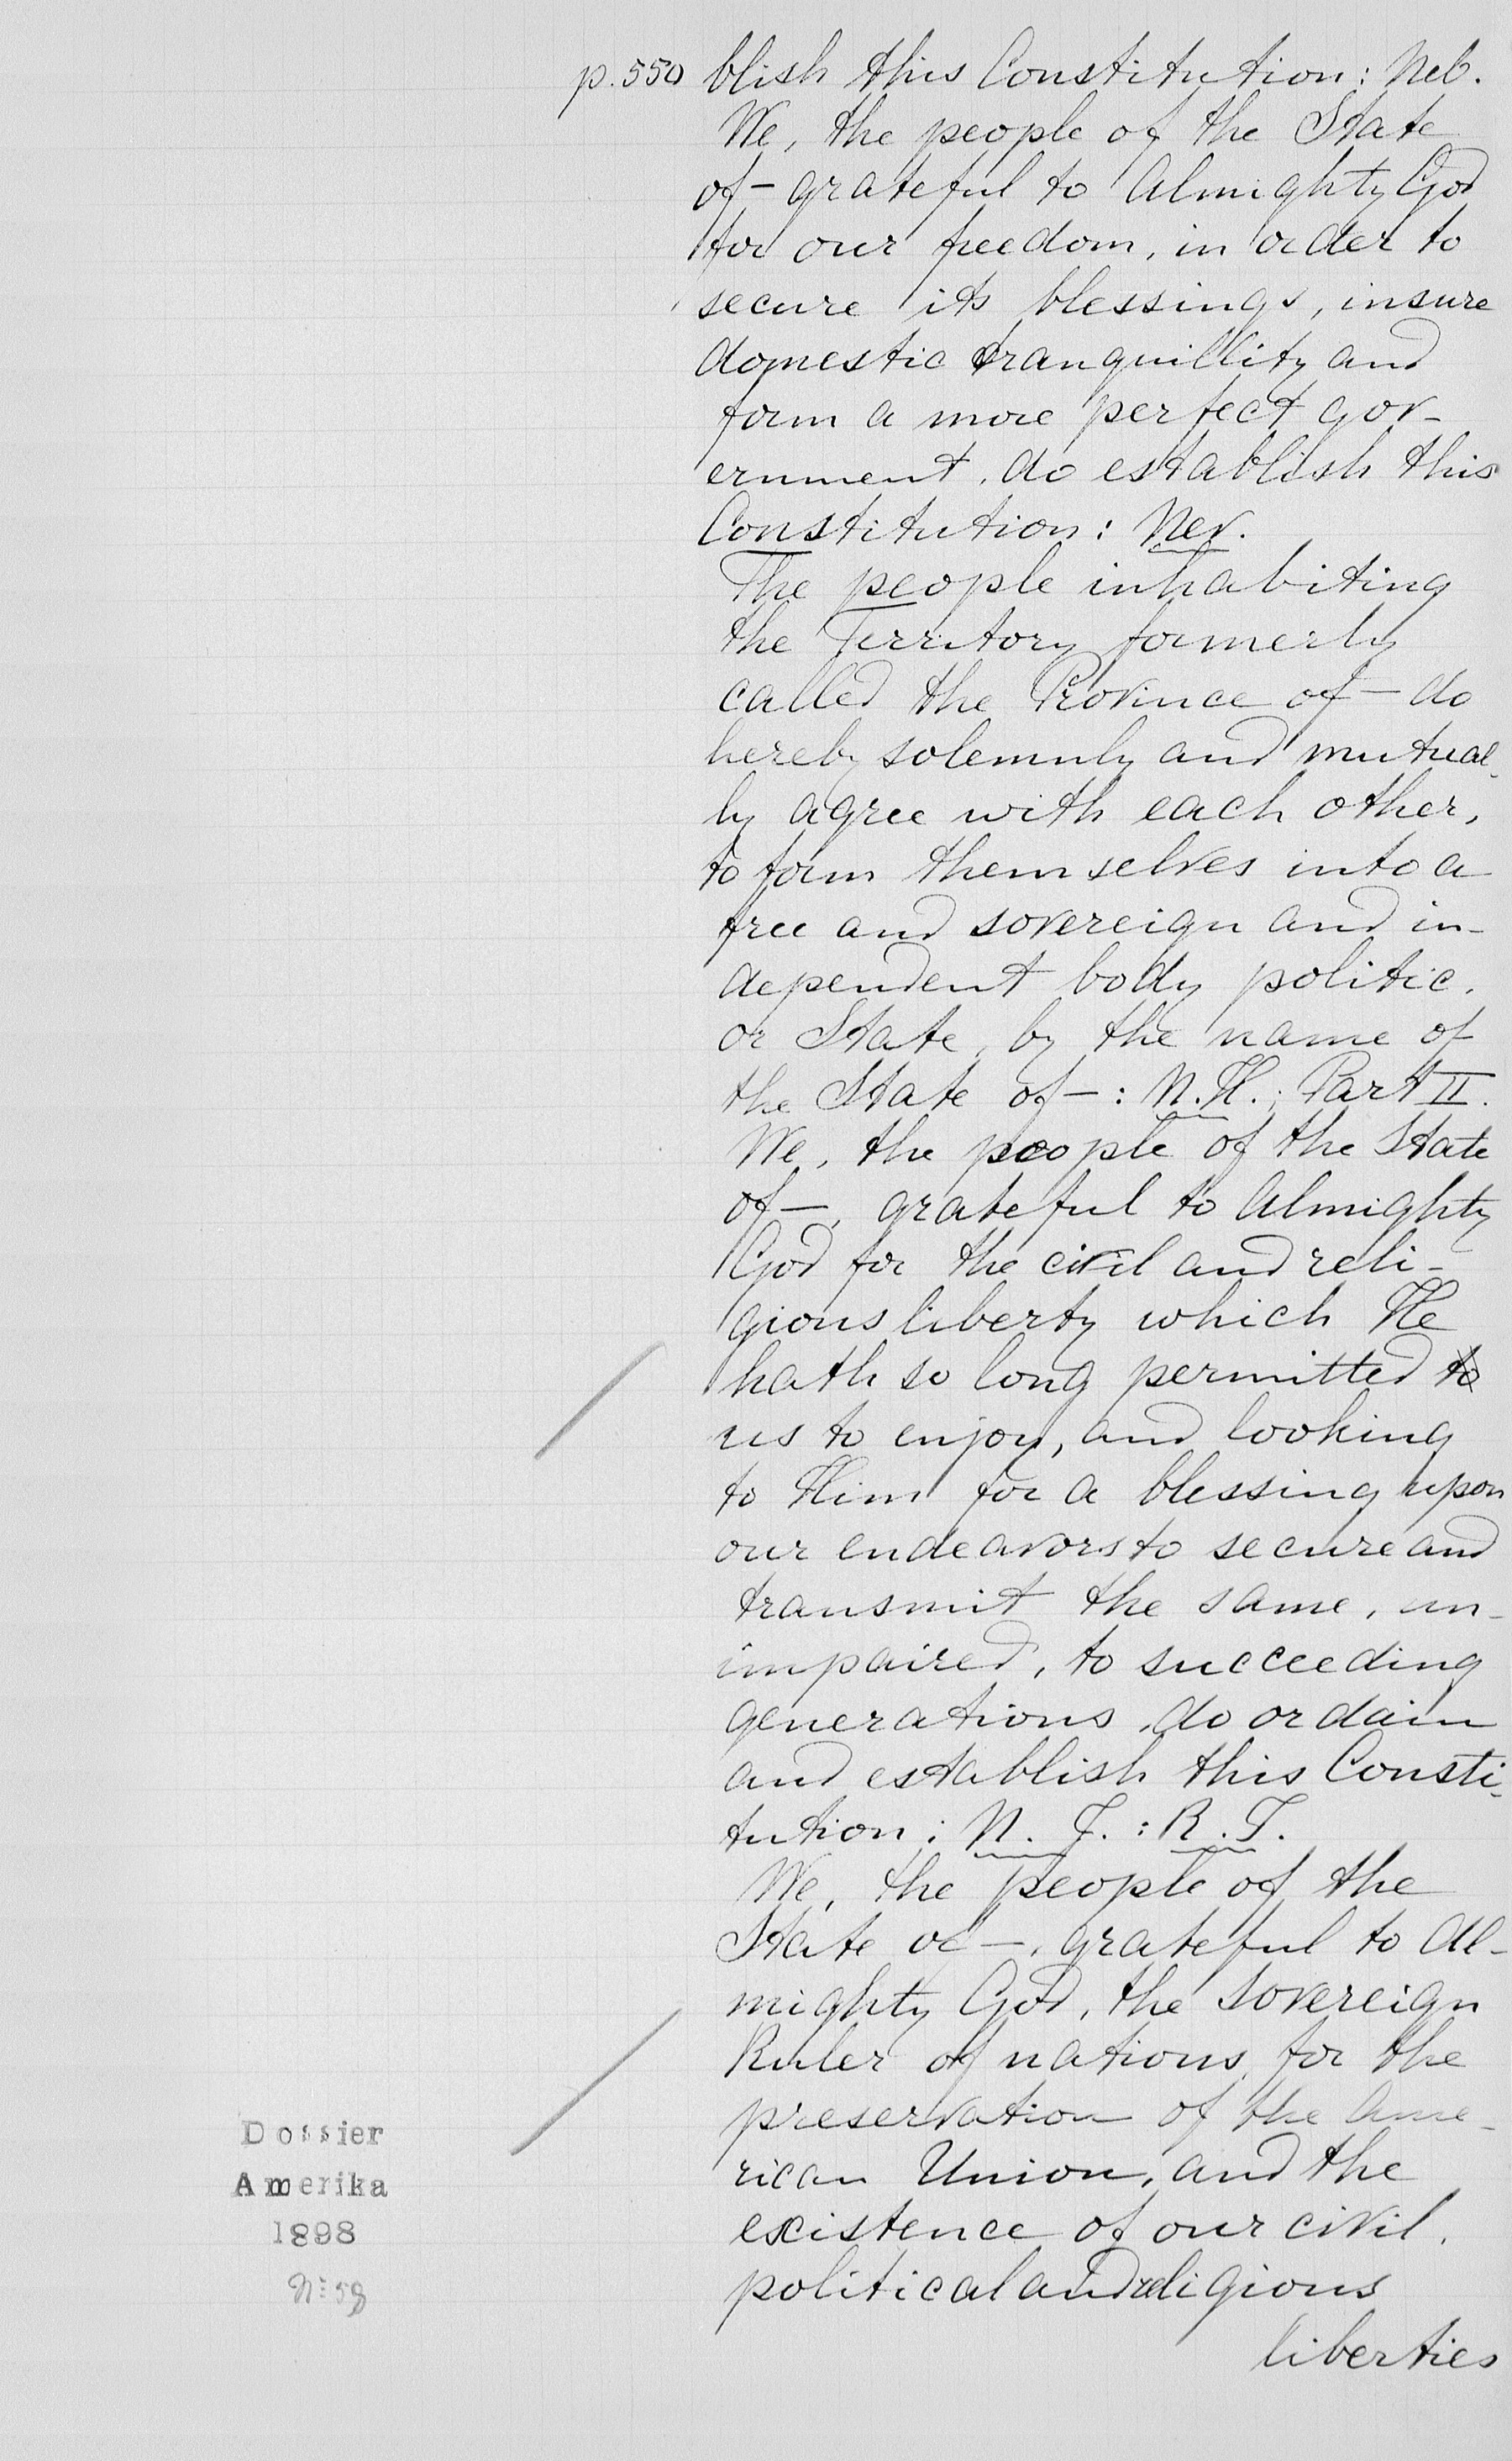 p.550 blish this Constitution: Neb.
We, the people of the State
of – grateful to Almighty God
for our freedom, in order to
secure its blessings, insure
domestic tranquillity and
form a more perfect gov-
ernment, do establish this
Constitution: Nev.
The people inhabiting
the Territory formerly
called the Province of – do
hereby solemnly and mutual-
ly agree with each other,
to form themselves into a
free and sovereign and in-
dependent body politic,
or State, by the name of
the State of – : N.H.; Part II.
We, the people of the State
of –, grateful to Almighty
God for the civil and reli-
gious liberty which He
hath so long permitted to
us to enjoy, and looking
to Him for a blessing upon
our endeavors to secure and
transmit the same, un-
impaired, to succeeding
generations, do ordain
and establish this Consti-
tution: N. J. : R. I.
We, the people of the
State of –, grateful to Al-
mighty God, the sovereign
Ruler of nations, for the
preservation of the Ame-
rican Union, and the
existence of our civil,
political and religious
liberties
Dossier
Amerika
1898
No 58